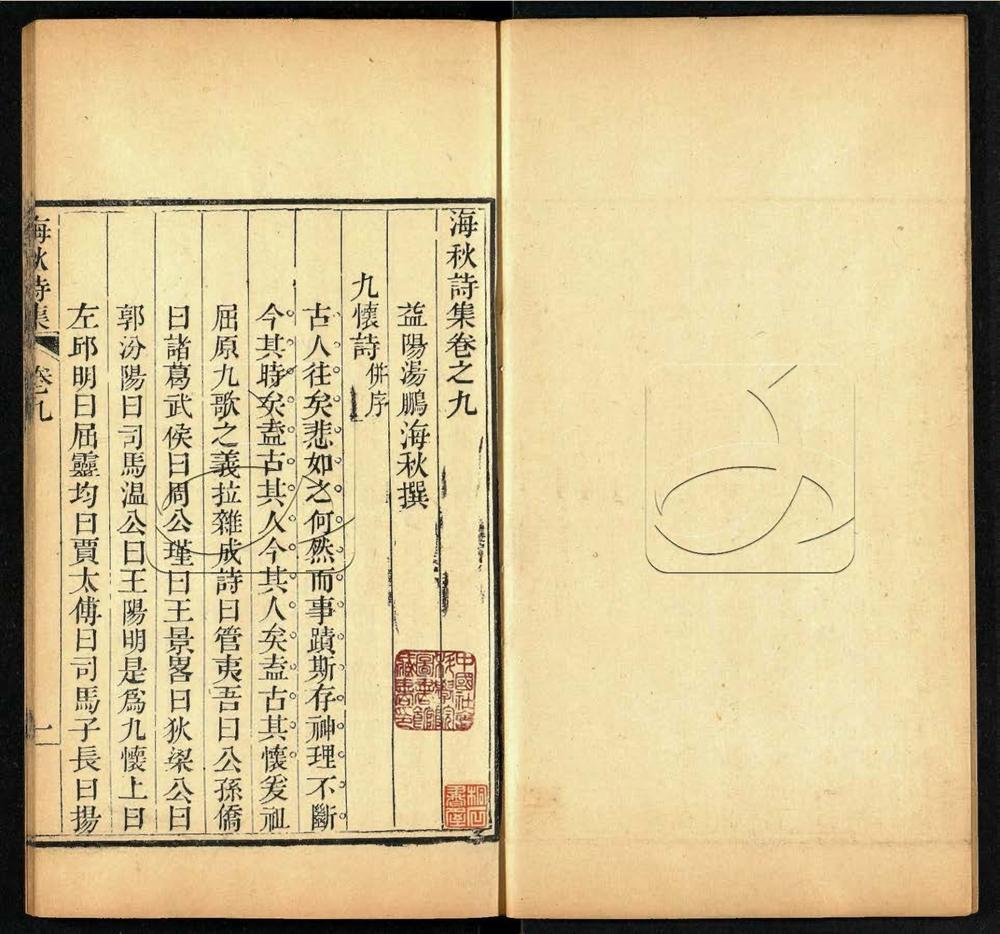 海秋詩集卷之九
益陽湯鵬海秋撰
九懷詩 併序
古人往矣悲如之何然而事蹟斯存神理不斷
今其時矣盍古其人今其人矣盍古其懷爰祉
屈原九歌之義拉雜成詩曰管夷吾曰公孫僑
曰諸葛武侯曰周公瑾曰王景畧曰狄梁公曰
郭汾陽曰司馬温公曰王陽明是爲九懷上曰
左邱明曰屈靈均曰賈太傅曰司馬子長曰揚
海秋詩集 卷之九 一
中國社會科學院圖書館藏書印